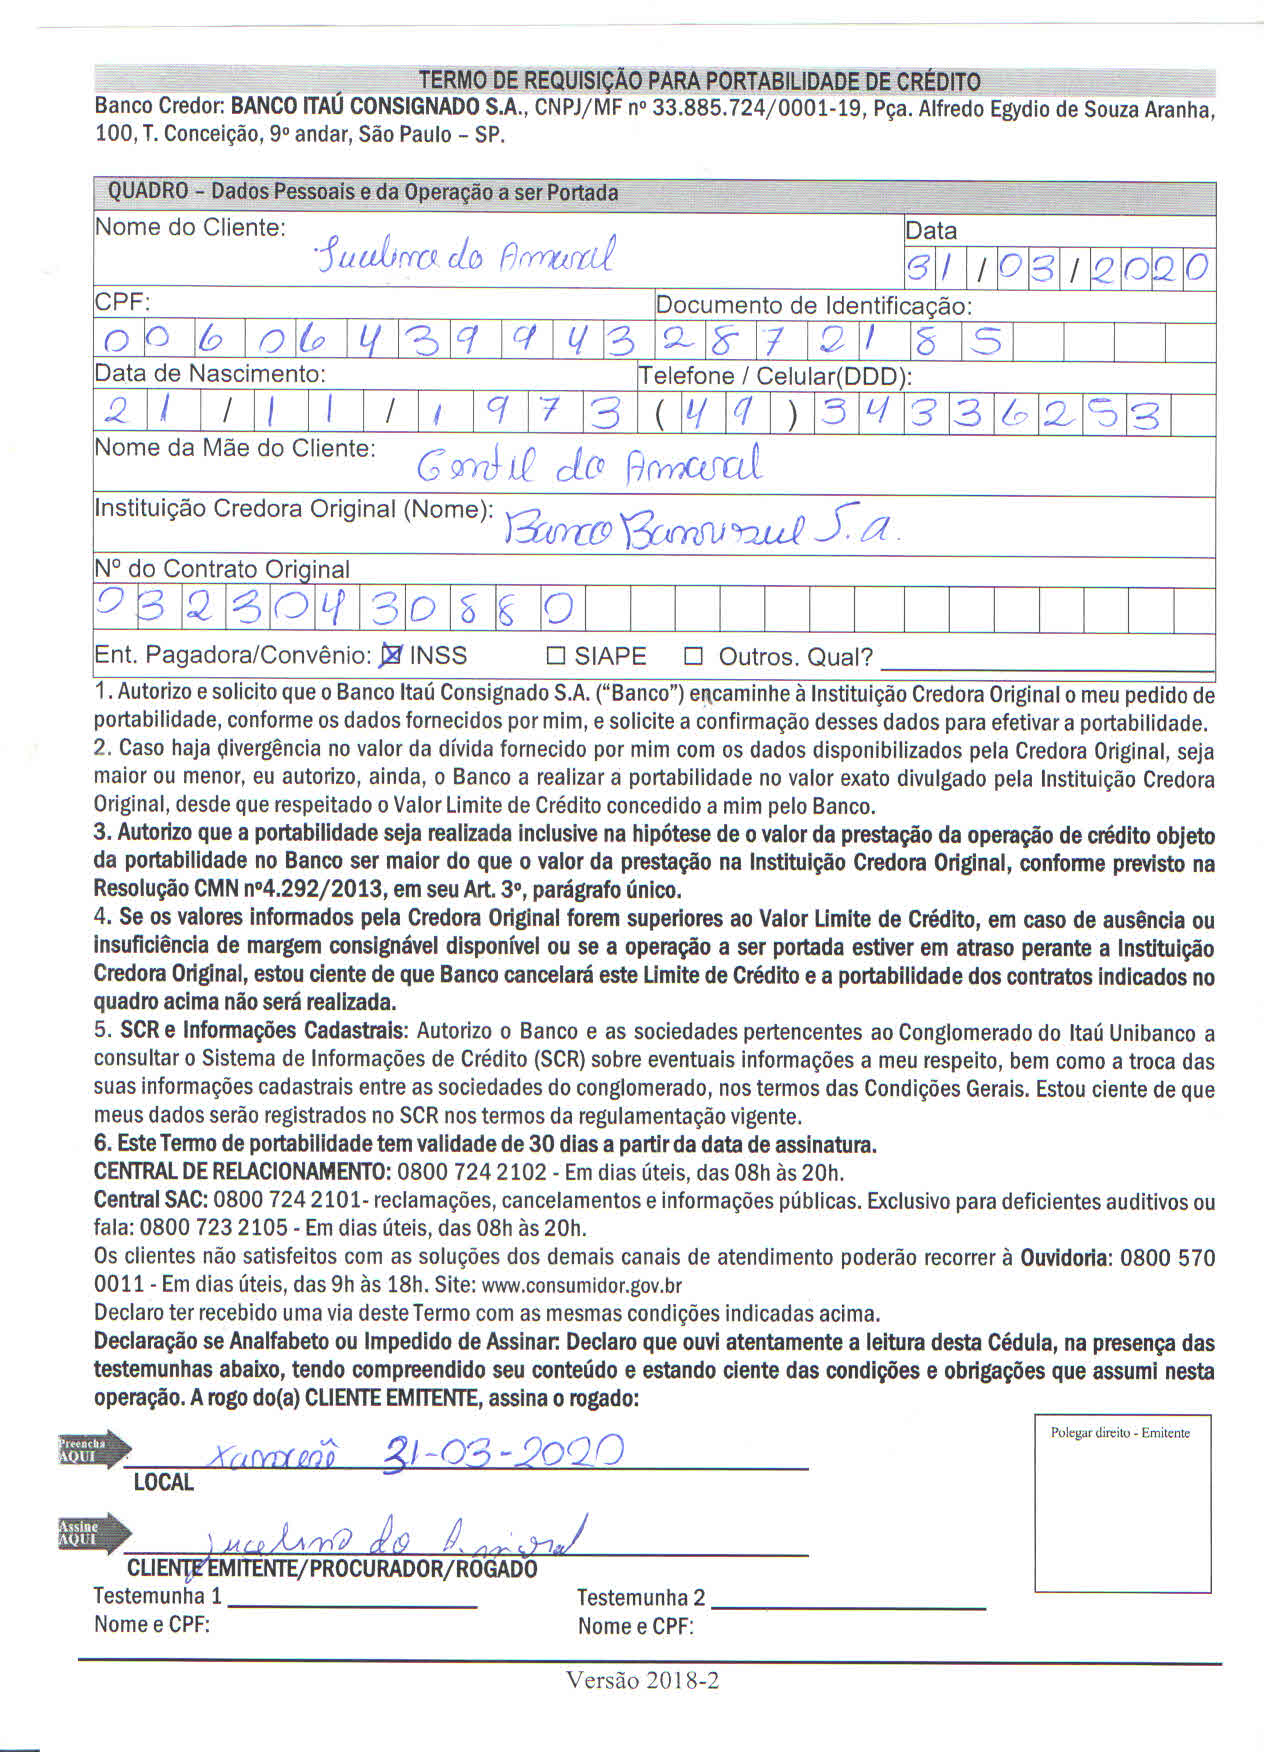 TERMO DE REQUISIÇÃO PARA PORTABILIDADE DE CRÉDITO
Banco Credor: BANCO ITAÚ CONSIGNADO S.A., CNPJ/MF nº 33.885.724/0001-19, Pça. Alfredo Egydio de Souza Aranha,
100, T. Conceição, 9º andar, São Paulo – SP.
QUADRO – Dados Pessoais e da Operação a ser Portada
Nome do Cliente: do Amaral Data
31/03/2020
CPF: Documento de Identificação:
00606439943 2872185
Data de Nascimento: Telefone / Celular(DDD):
21/11/1973 (49)34336253
Nome da Mãe do Cliente: Gentil do Amaral
Instituição Credora Original (Nome): Banco Banrisul S.a.
Nº do Contrato Original
03230430880
Ent. Pagadora/Convênio: ☒ INSS ☐ SIAPE ☐ Outros. Qual?
1. Autorizo e solicito que o Banco Itaú Consignado S.A. (“Banco”) encaminhe à Instituição Credora Original o meu pedido de
portabilidade, conforme os dados fornecidos por mim, e solicite a confirmação desses dados para efetivar a portabilidade.
2. Caso haja divergência no valor da dívida fornecido por mim com os dados disponibilizados pela Credora Original, seja
maior ou menor, eu autorizo, ainda, o Banco a realizar a portabilidade no valor exato divulgado pela Instituição Credora
Original, desde que respeitado o Valor Limite de Crédito concedido a mim pelo Banco.
3. Autorizo que a portabilidade seja realizada inclusive na hipótese de o valor da prestação da operação de crédito objeto
da portabilidade no Banco ser maior do que o valor da prestação na Instituição Credora Original, conforme previsto na
Resolução CMN nº4.292/2013, em seu Art. 3º, parágrafo único.
4. Se os valores informados pela Credora Original forem superiores ao Valor Limite de Crédito, em caso de ausência ou
insuficiência de margem consignável disponível ou se a operação a ser portada estiver em atraso perante a Instituição
Credora Original, estou ciente de que Banco cancelará este Limite de Crédito e a portabilidade dos contratos indicados no
quadro acima não será realizada.
5. SCR e Informações Cadastrais: Autorizo o Banco e as sociedades pertencentes ao Conglomerado do Itaú Unibanco a
consultar o Sistema de Informações de Crédito (SCR) sobre eventuais informações a meu respeito, bem como a troca das
suas informações cadastrais entre as sociedades do conglomerado, nos termos das Condições Gerais. Estou ciente de que
meus dados serão registrados no SCR nos termos da regulamentação vigente.
6. Este Termo de portabilidade tem validade de 30 dias a partir da data de assinatura.
CENTRAL DE RELACIONAMENTO: 0800 724 2102 - Em dias úteis, das 08h às 20h.
Central SAC: 0800 724 2101- reclamações, cancelamentos e informações públicas. Exclusivo para deficientes auditivos ou
fala: 0800 723 2105 - Em dias úteis, das 08h às 20h.
Os clientes não satisfeitos com as soluções dos demais canais de atendimento poderão recorrer à Ouvidoria: 0800 570
0011 - Em dias úteis, das 9h às 18h. Site: www.consumidor.gov.br
Declaro ter recebido uma via deste Termo com as mesmas condições indicadas acima.
Declaração se Analfabeto ou Impedido de Assinar: Declaro que ouvi atentamente a leitura desta Cédula, na presença das
testemunhas abaixo, tendo compreendido seu conteúdo e estando ciente das condições e obrigações que assumi nesta
operação. A rogo do(a) CLIENTE EMITENTE, assina o rogado:
Polegar direito - Emitente
Preencha
AQUI
31-03-2020
LOCAL
Assine
AQUI
jucelino do Amaral
CLIENTE EMITENTE/PROCURADOR/ROGADO
Testemunha 1 Testemunha 2
Nome e CPF: Nome e CPF:
Versão 2018-2